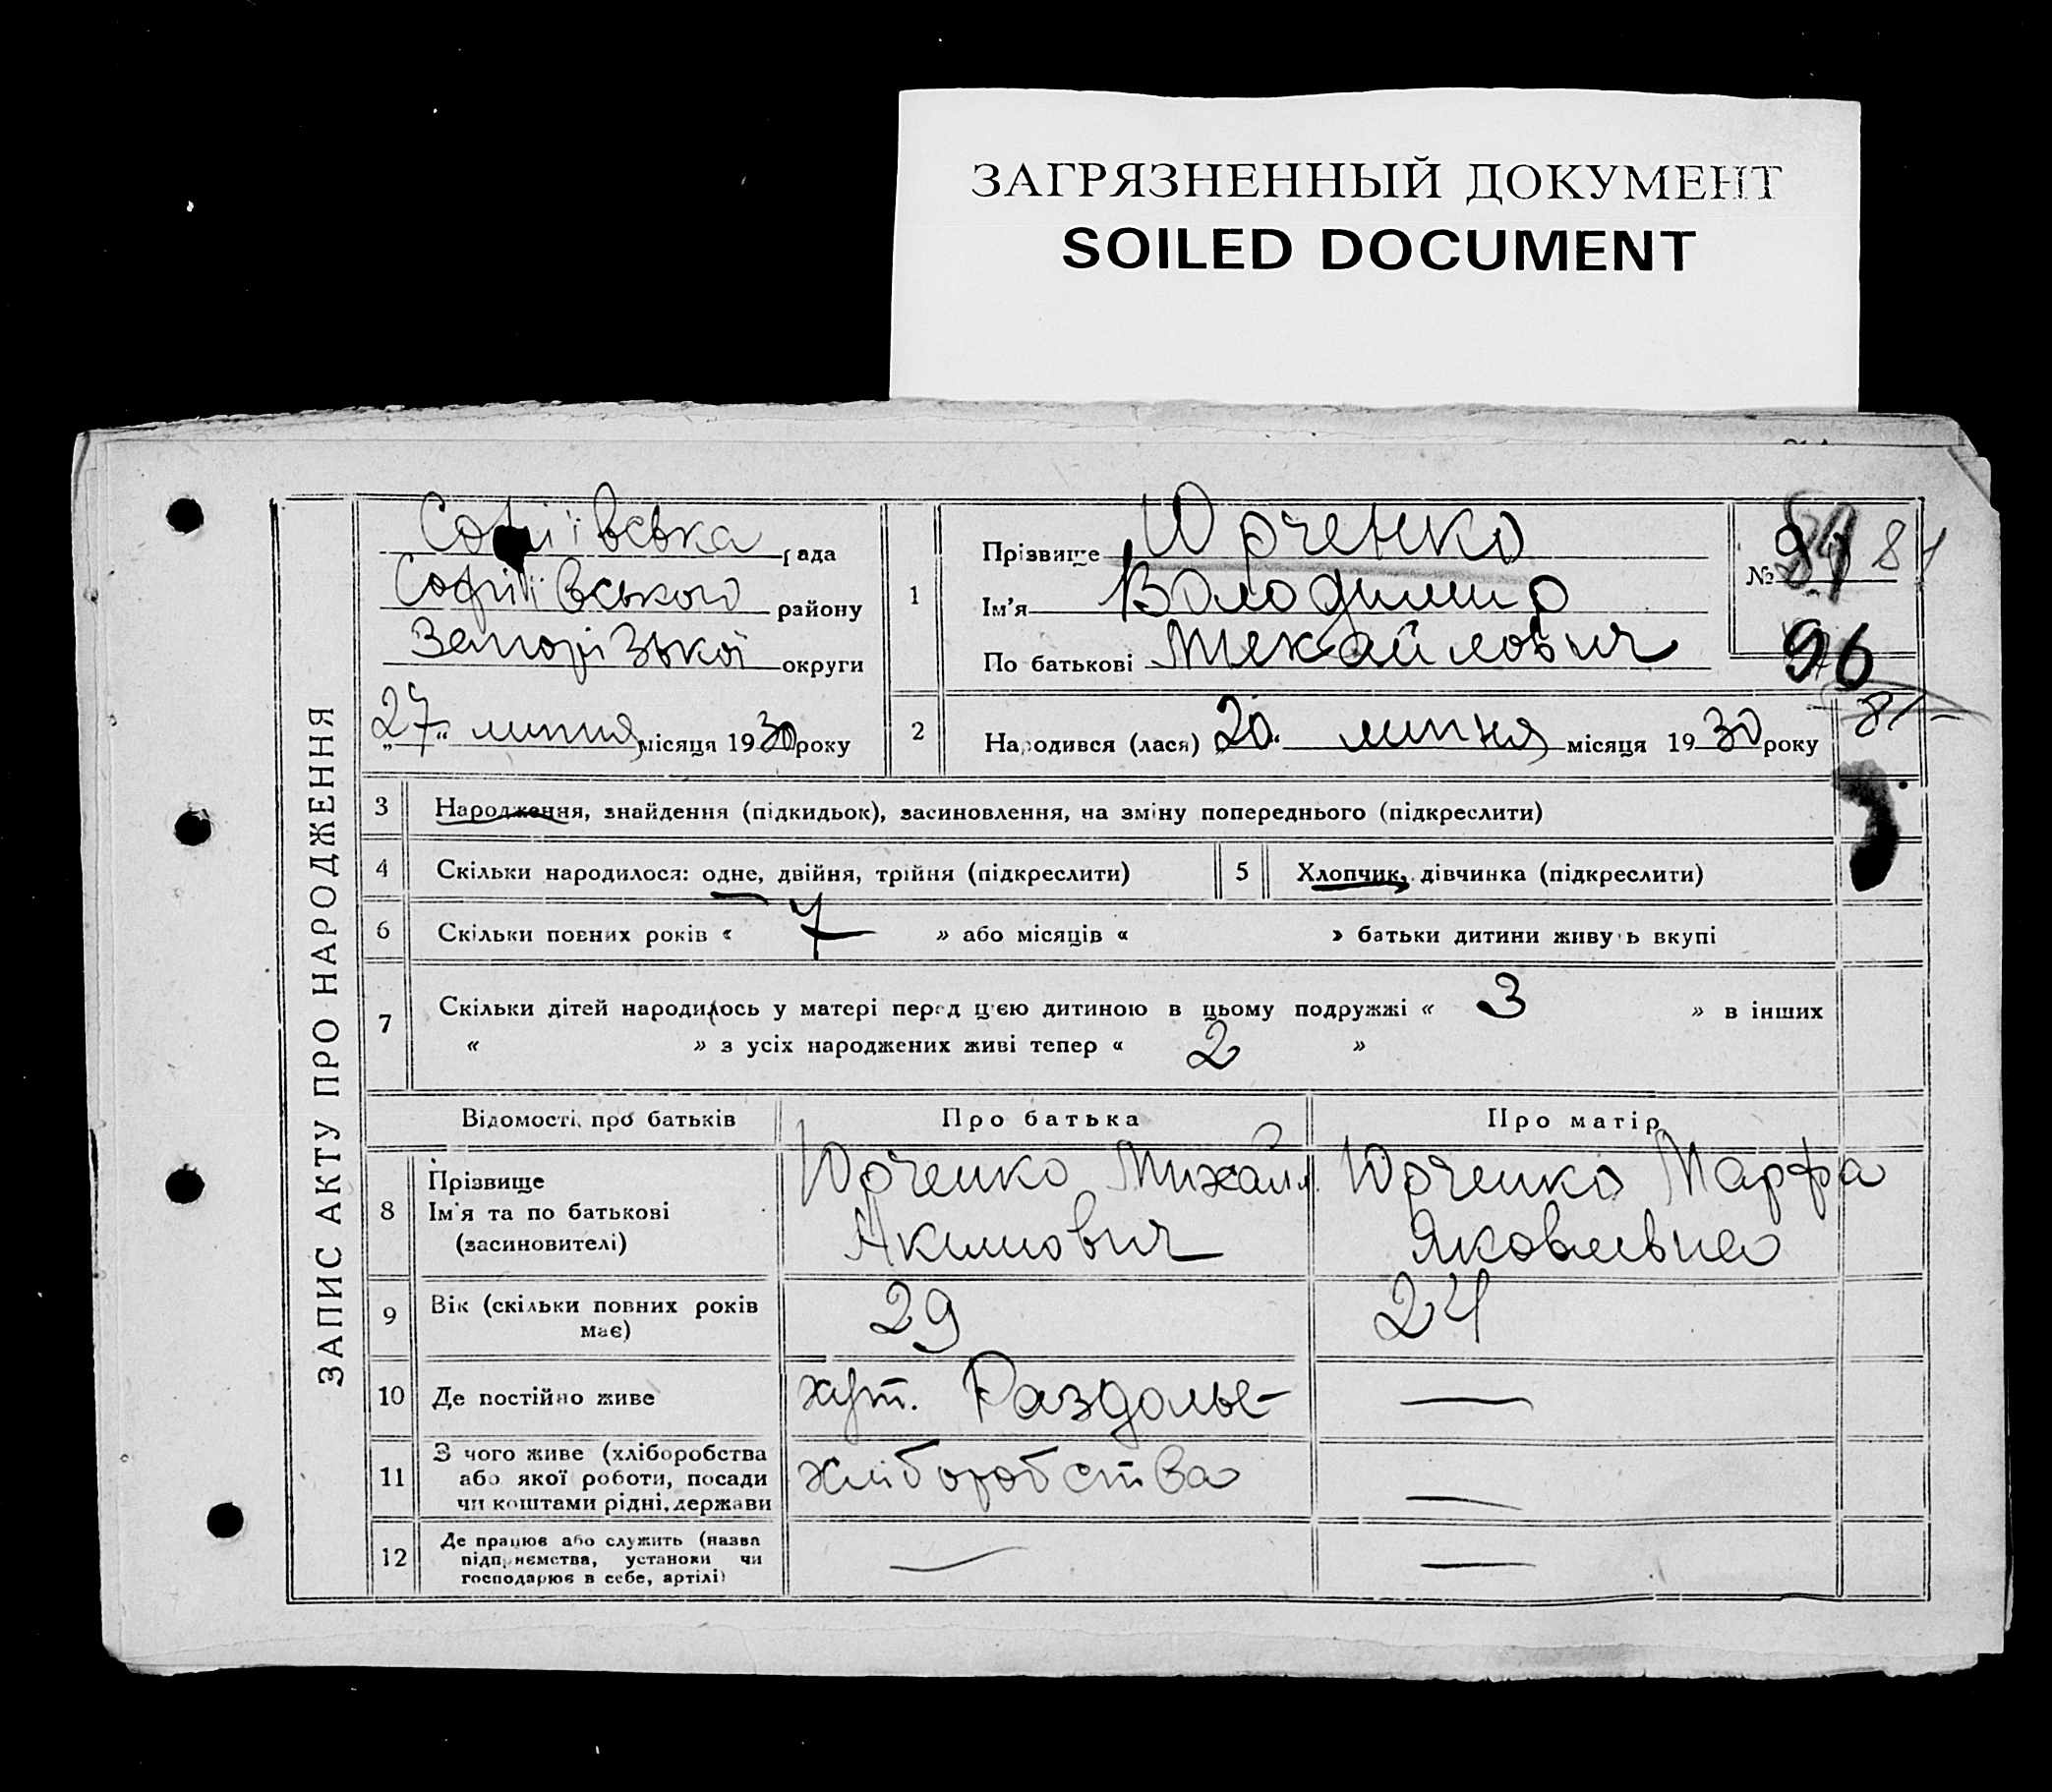 ЗАГРЯЗНЕННЫЙ ДОКУМЕНТ
SOILED DOCUMENT
ЗАПИС АКТУ ПРО НАРОДЖЕННЯ
Софіївська рада
Софіївського району
Запорізької округи
„27“ липня місяця 1930 року
1
Прізвище Юрченко
Ім'я Володимир
По батькові Михайлович
№ 81
96
81
2
Народився (лася) 20 липня місяця 1930 року
3 Народження, знайдення (підкидьок), засиновлення, на зміну попереднього (підкреслити)
4 Скільки народилося: одне, двійня, трійня (підкреслити)
5 Хлопчик, дівчинка (підкреслити)
6 Скільки повних років « 7 » або місяців « » батьки дитини живуть вкупі
7 Скільки дітей народилось у матері перед цією дитиною в цьому подружжі « 3 » в інших
« » з усіх народжених живі тепер « 2 »
Відомості про батьків Про батька Про матір
8 Прізвище
Ім'я та по батькові
(засиновителі)
Юрченко Михайл
Акимович
Юрченко Марфа
Яковлевна
9 Вік (скільки повних років
має)
29
24
10 Де постійно живе хут. Раздолье —
11 З чого живе (хліборобства
або якої роботи, посади
чи коштами рідні, держави
хліборобства
—
12 Де працює або служить (назва
підприємства, установи чи
господарює в себе, артілі)
— —